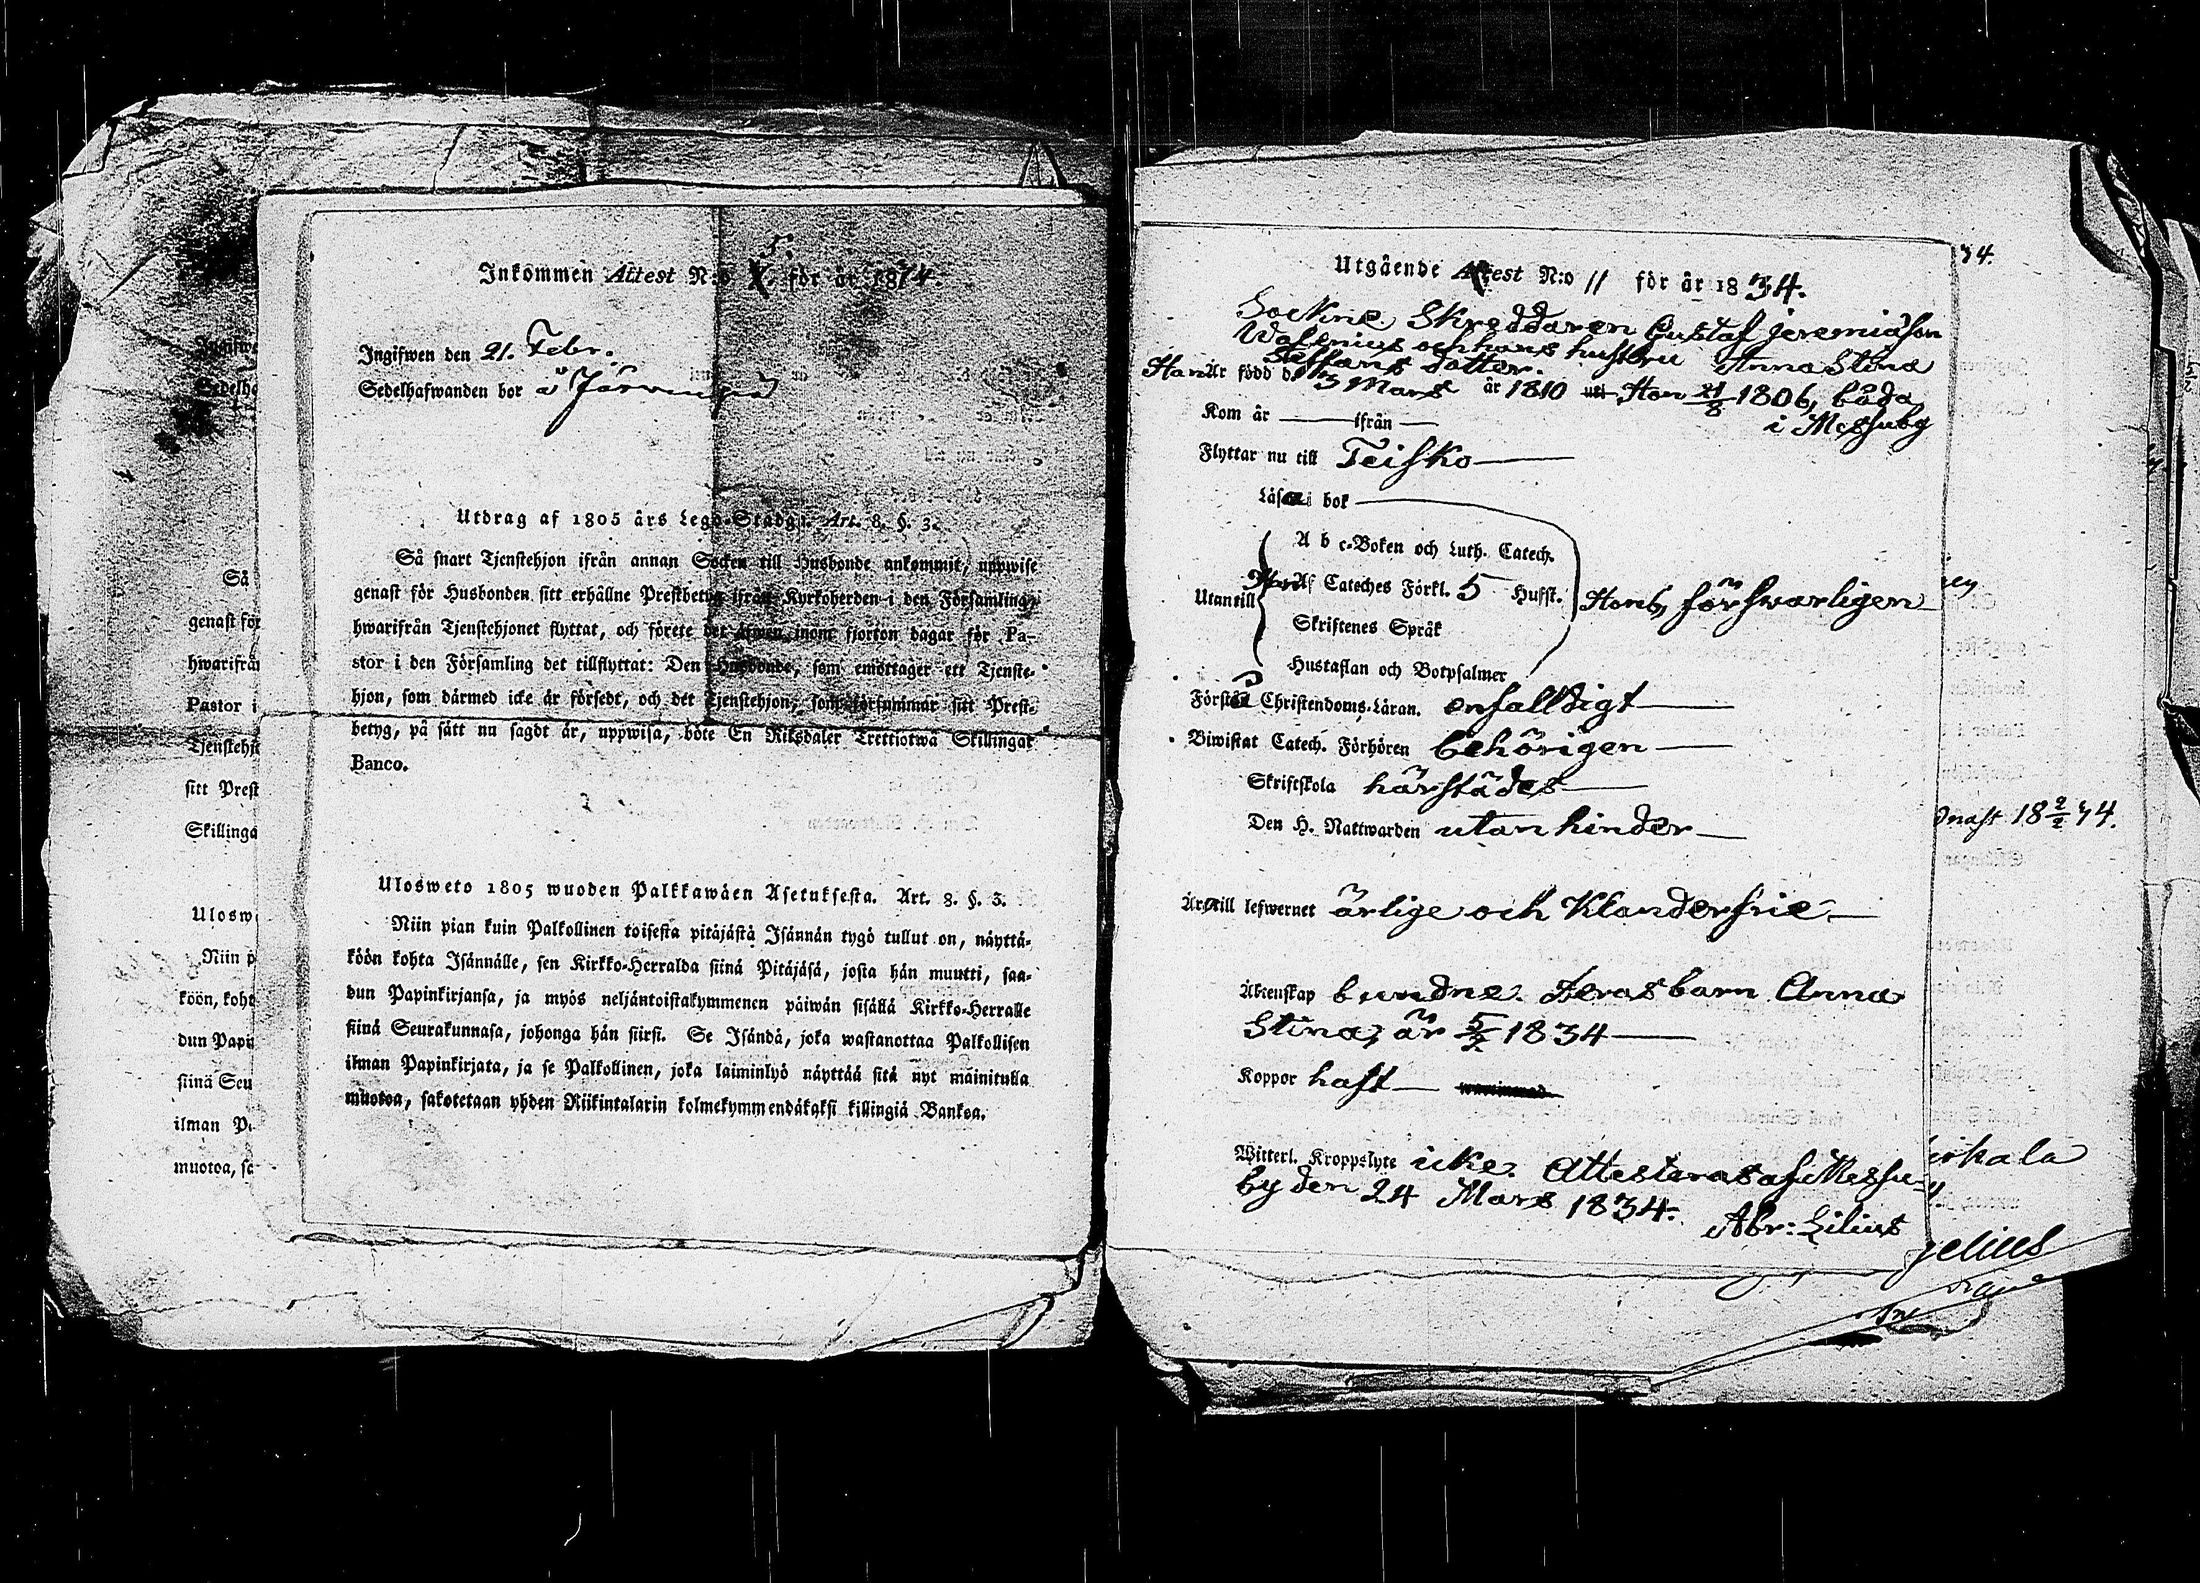 Inkommen Attest N:o 5. för år 1834.
Ingifwen den 21. Febr.
Sedelhafwanden bor å
Utdrag af 1805 års Lego-Stadga. Art. 8. §. 3.
Så snart Tjenstehjon ifrån annan Socken till Husbonde ankommit, uppwise
genast för Husbonden sitt erhållne Prestbetyg ifrån Kyrkoherden i den Församling,
hwarifrån Tjenstehjonet flyttat, och förete det äfwen inom fjorton dagar för Pa-
stor i den Församling det tillflyttat: Den Husbonde, som emottager ett Tjenste-
hjon, som därmed icke är försedt, och det Tjenstehjon, som försummar sitt Prest-
betyg, på sätt nu sagdt är, uppwisa, böte En Riksdaler Trettiotwå Skillingar
Banco.
Ulosweto 1805 wuoden Palkkawäen Asetuksesta. Art. 8. §. 3.
Niin pian kuin Palkollinen toisesta pitäjästä Isännän tygö tullut on, näyttä-
köön kohta Isännälle, sen Kirkko-Herralda siinä Pitäjäsä, josta hän muutti, saa-
dun Papinkirjansa, ja myös neljäntoistakymmenen päiwän sisällä Kirkko-Herralle
siinä Seurakunnasa, johonga hän siirsi. Se Isändä, joka wastanottaa Palkollisen
ilman Papinkirjata, ja se Palkollinen, joka laiminlyö näyttää sitä nyt mainitulla
muotoa, sakotetaan yhden Riikintalarin kolmekymmendäkaksi killingiä Bankoa.
Så
genast för
hwarifrån
Pastor i
Tjenstehjo
sitt Prest
Skillinga
Ulosw
Niin p
köön, koht
dun Papi
siinä Seu
ilman P
muotoa, sa
Utgående Attest N:o 11 för år 1834.
Sockne Skreddaren Gustaf Jeremiason
Walenius och hans hustru Anna Stina
Staffans dotter.
Han Är född d. 3 Mars år 1810 Hon 21/8 1806, båda
i Messuby
Kom år — ifrån —
Flyttar nu till Teisko
Läsa i bok
A b c-Boken och Luth. Catech.
Utantill Han Af Cateches Förkl. 5 Hufst. Hon 6, försvarligen
Skriftenes Språk
Hustaflan och Botpsalmer
Förstå Christendoms-Läran. enfalldigt
Biwistat Catech. Förhören behörigen
Skriftskola härstädes
Den H. Nattwarden utan hinder
Äro till lefwernet ärlige och Klanderfrie
Äktenskap bundne. Deras barn Anna
Stina, är 5/2 1834
Koppor haft
Witterl. Kroppslyte icke. Attesteras af Messu-
by den 24 Mars 1834.
Abr: Lilius
34.
dnast 18 2/2 34.
irkala
gelius